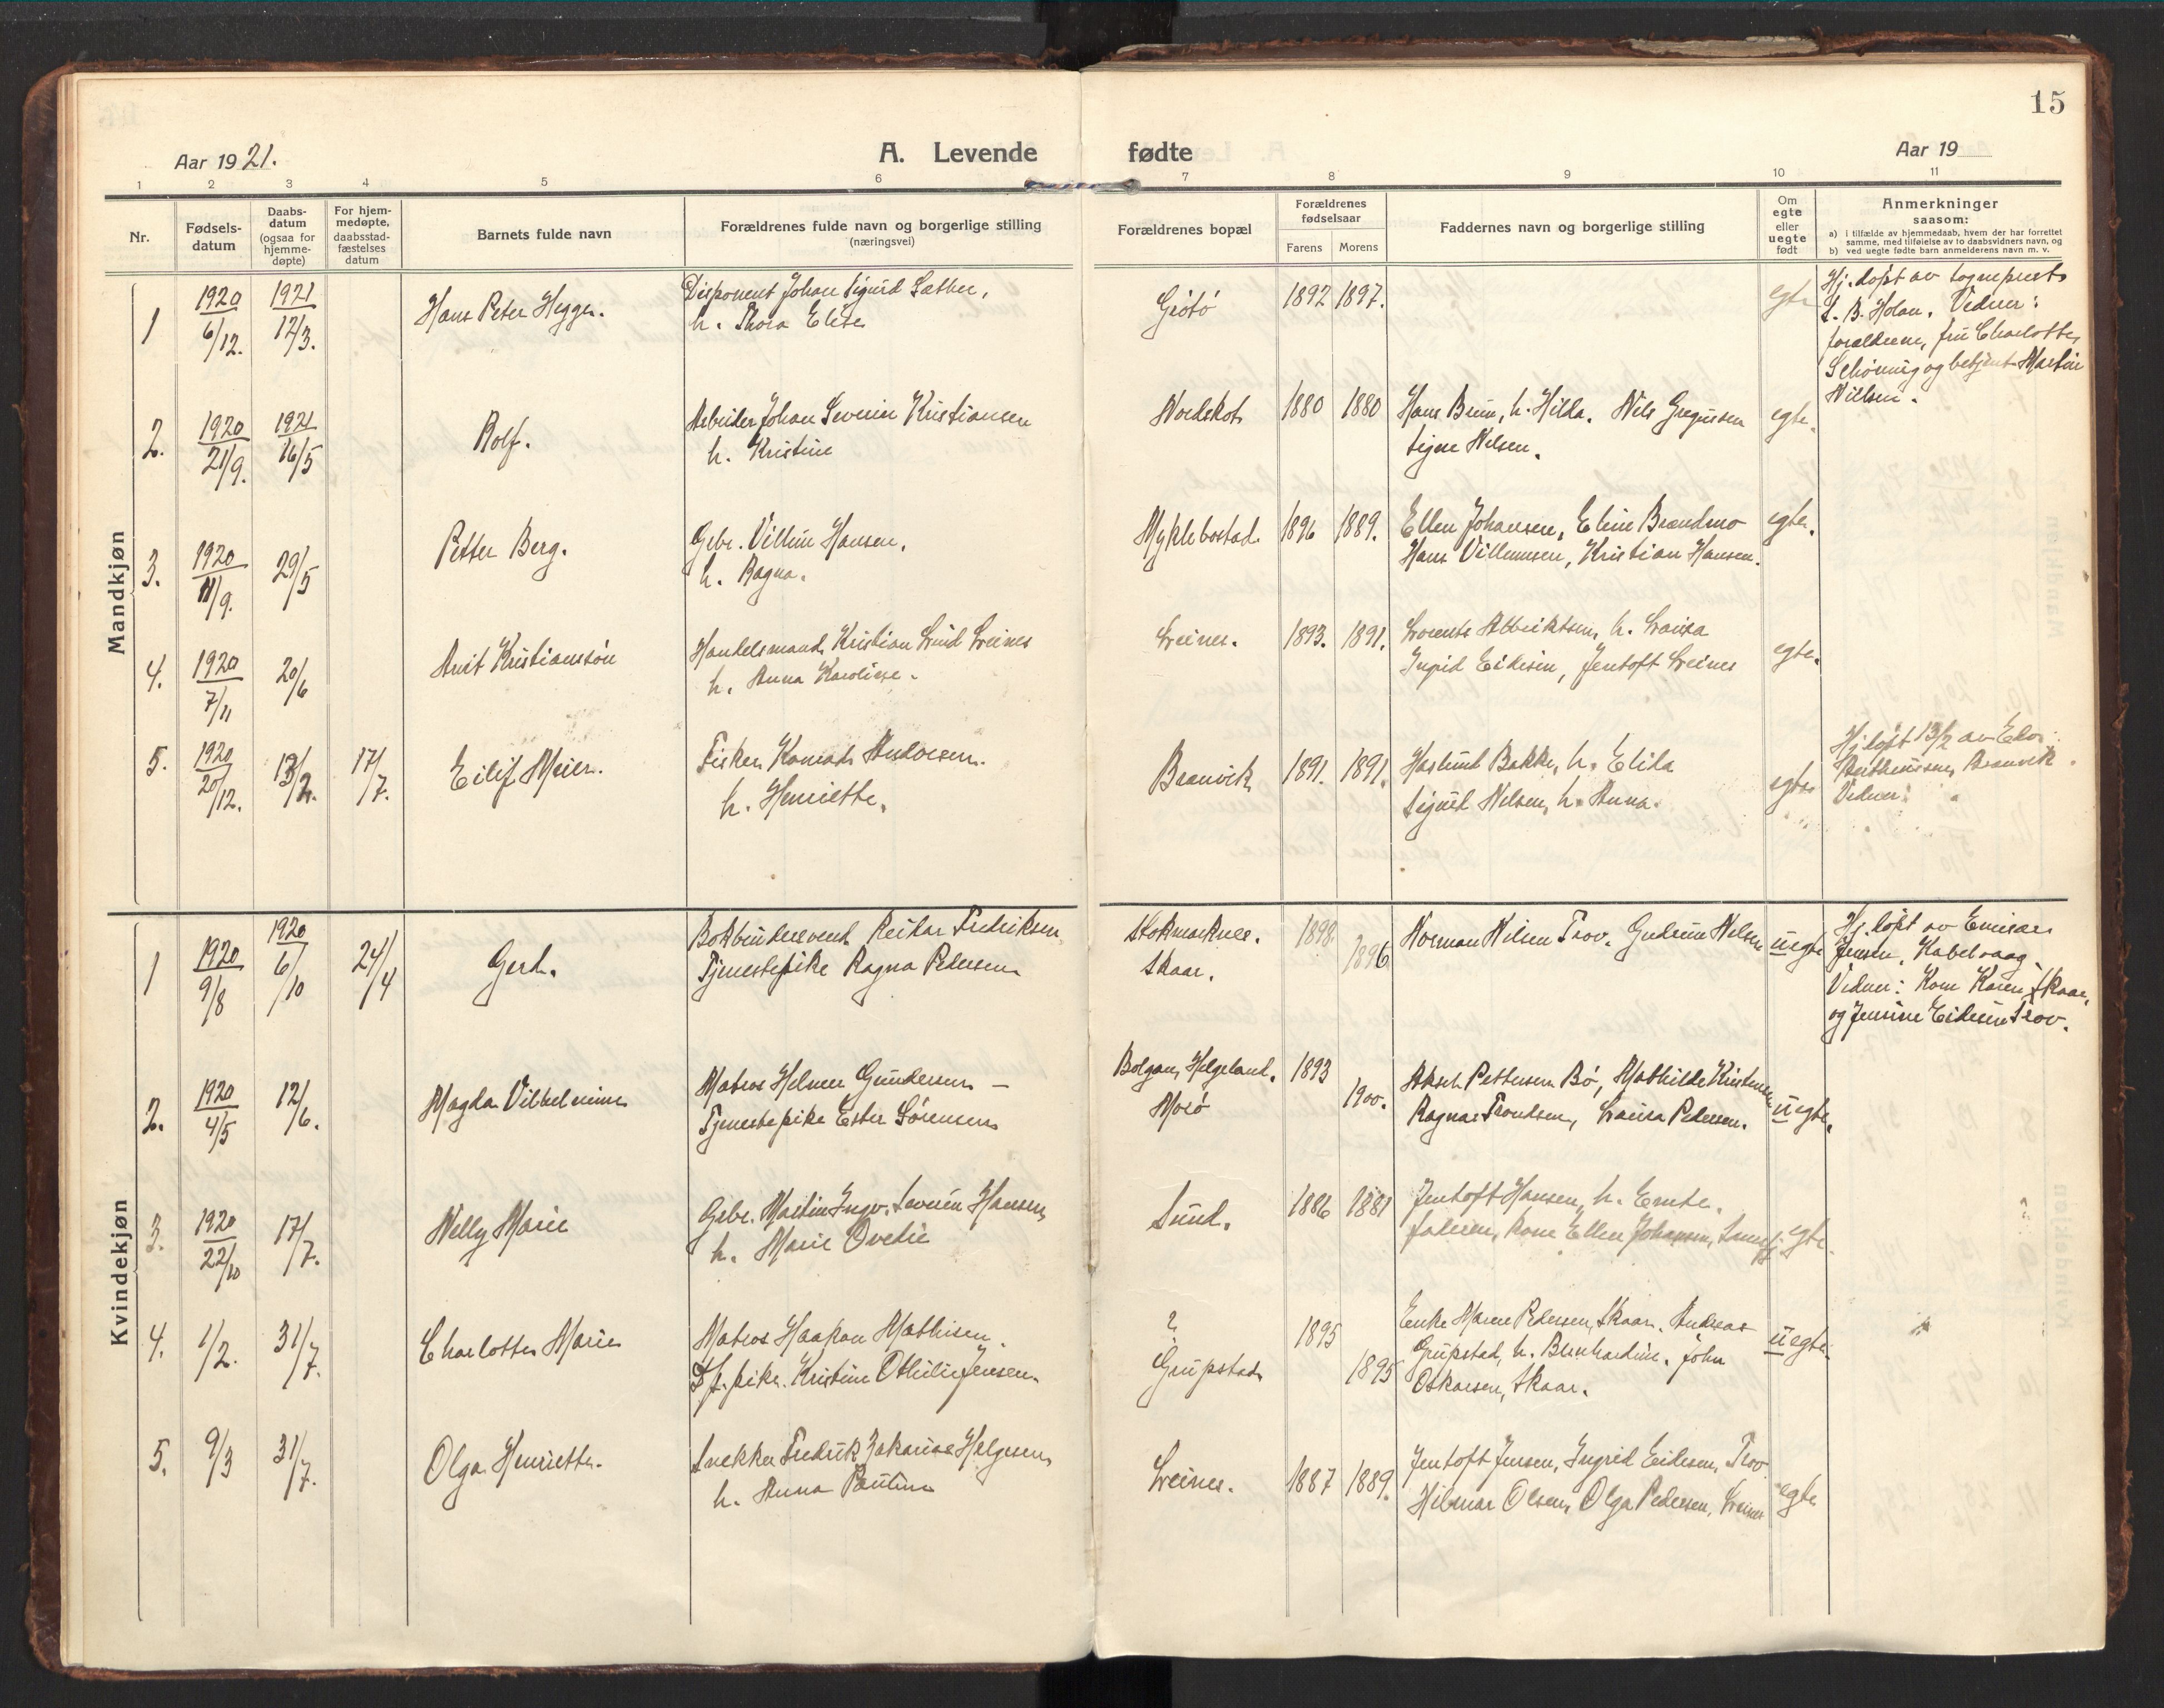 15
Aar 1921.
A. Levende fødte
Aar 19
1 2 3 4 5 6 7 8 9 10 11
Nr.
Fødsels-
datum
Daabs-
datum
(ogsaa for
hjemme-
døpte)
For hjem-
medøpte,
daabsstad-
fæstelses
datum
Barnets fulde navn
Forældrenes fulde navn og borgerlige stilling
(næringsvei)
Forældrenes bopæl
Forældrenes
fødselsaar
Farens Morens
Faddernes navn og borgerlige stilling
Om
egte
eller
uegte
født
Anmerkninger
saasom:
a) i tilfælde av hjemmedaab, hvem der har forrettet
samme, med tilføielse av to daabsvidners navn, og
b) ved uegte fødte barn anmelderens navn m. v.
Mandkjøn
1 1920 6/12. 1921 12/3. Hans Peter Hegge.
Disponent Johan Sigurd Sæther,
h. Thora Elise
Grøtø 1892 1897. egte
Hj. døpt av sogneprest
S. B. Holan. Vidner:
forældrene, fru Charlotte
Schøning og betjent Martin
Nilsen.
2. 1920 21/9. 1921 16/5 Rolf.
Arbeider Johan Severin Kristiansen
h. Kristine
Nordskot 1880 1880
Hans Bruun, h. Hilda. Nils Gregusen
Signe Nilsen.
egte.
3. 1920 11/9. 29/5 Petter Berg.
Gbr. Villum Hansen,
h. Ragna.
Myklebostad 1896 1889.
Ellen Johansen, Eline Brandmo
Hans Villumsen, Kristian Hansen.
egte.
4. 1920 7/11 20/6 Arnt Kristiansøn
Handelsmand Kristian Lund Leines
h. Anna Karoline.
Leines. 1893. 1891.
Lorents Albriktsen, h. Lovisa
Ingrid Eidesen, Jentoft Leines
egte.
5. 1920 20/12. 13/2. 17/7. Eilif Meier.
Fisker Konrad Andorsen.
h. Henriette.
Branvik 1891. 1891.
Haslund Bakke, h. Elida
Sigurd Nilsen, h. Anna.
egte
Hj. døpt 13/2 av
Branvik.
Vidner:
Kvindekjøn
1 1920 9/8 1920 6/10 24/4 Gerd.
Bokbindersvend Reidar Fredriksen
Tjenestepike Ragna Pedersen
Stokmarknes.
Skaar.
1898. 1896
Norman Nilsen Trov. Gudrun Nilsen
uegte
Hj. døpt av Emisær
Jensen, Kabelvaag.
Vidner: Kone Karen Skaar,
og Jensine Eidesen Trov.
2. 1920 4/5 12/6. Magda Vilhelmine
Matros Helmer Gundersen –
Tjenestepike Ester Sørensen
Bolgan, Helgeland.
Morø
1893 1900.
Aksel Pettersen Bø, Mathilde Kristensen
Ragnar Trondsen, Lovisa Pedersen.
uegte.
3. 1920 22/10 17/7. Nelly Marie
Gbr. Martin Ingv. Severin Hansen
h. Marie Ovedie
Sund. 1886 1881
Jentoft Hansen, h. Emte.
faderen, kone Ellen Johansen,
egte.
4. 1/2. 31/7. Charlotte Marie
Matros Haakon Mathisen.
Tj. pike. Kristine Othilie Jensen.
?
Grupstad
1895 1895
Enke Maren Pedersen, Skaar. Andreas
Grupstad, h. Bernhardine. John
Oskarsen, Skaar.
uegte.
5. 9/3 31/7. Olga Henriette.
Snekker Fredrik Zakarias Helgesen
h. Anna Pauline
Leines. 1887 1889.
Jentoft Jensen, Ingrid Eidesen, Trov
Hilmar Olsen, Olga Pedersen, Leines
egte